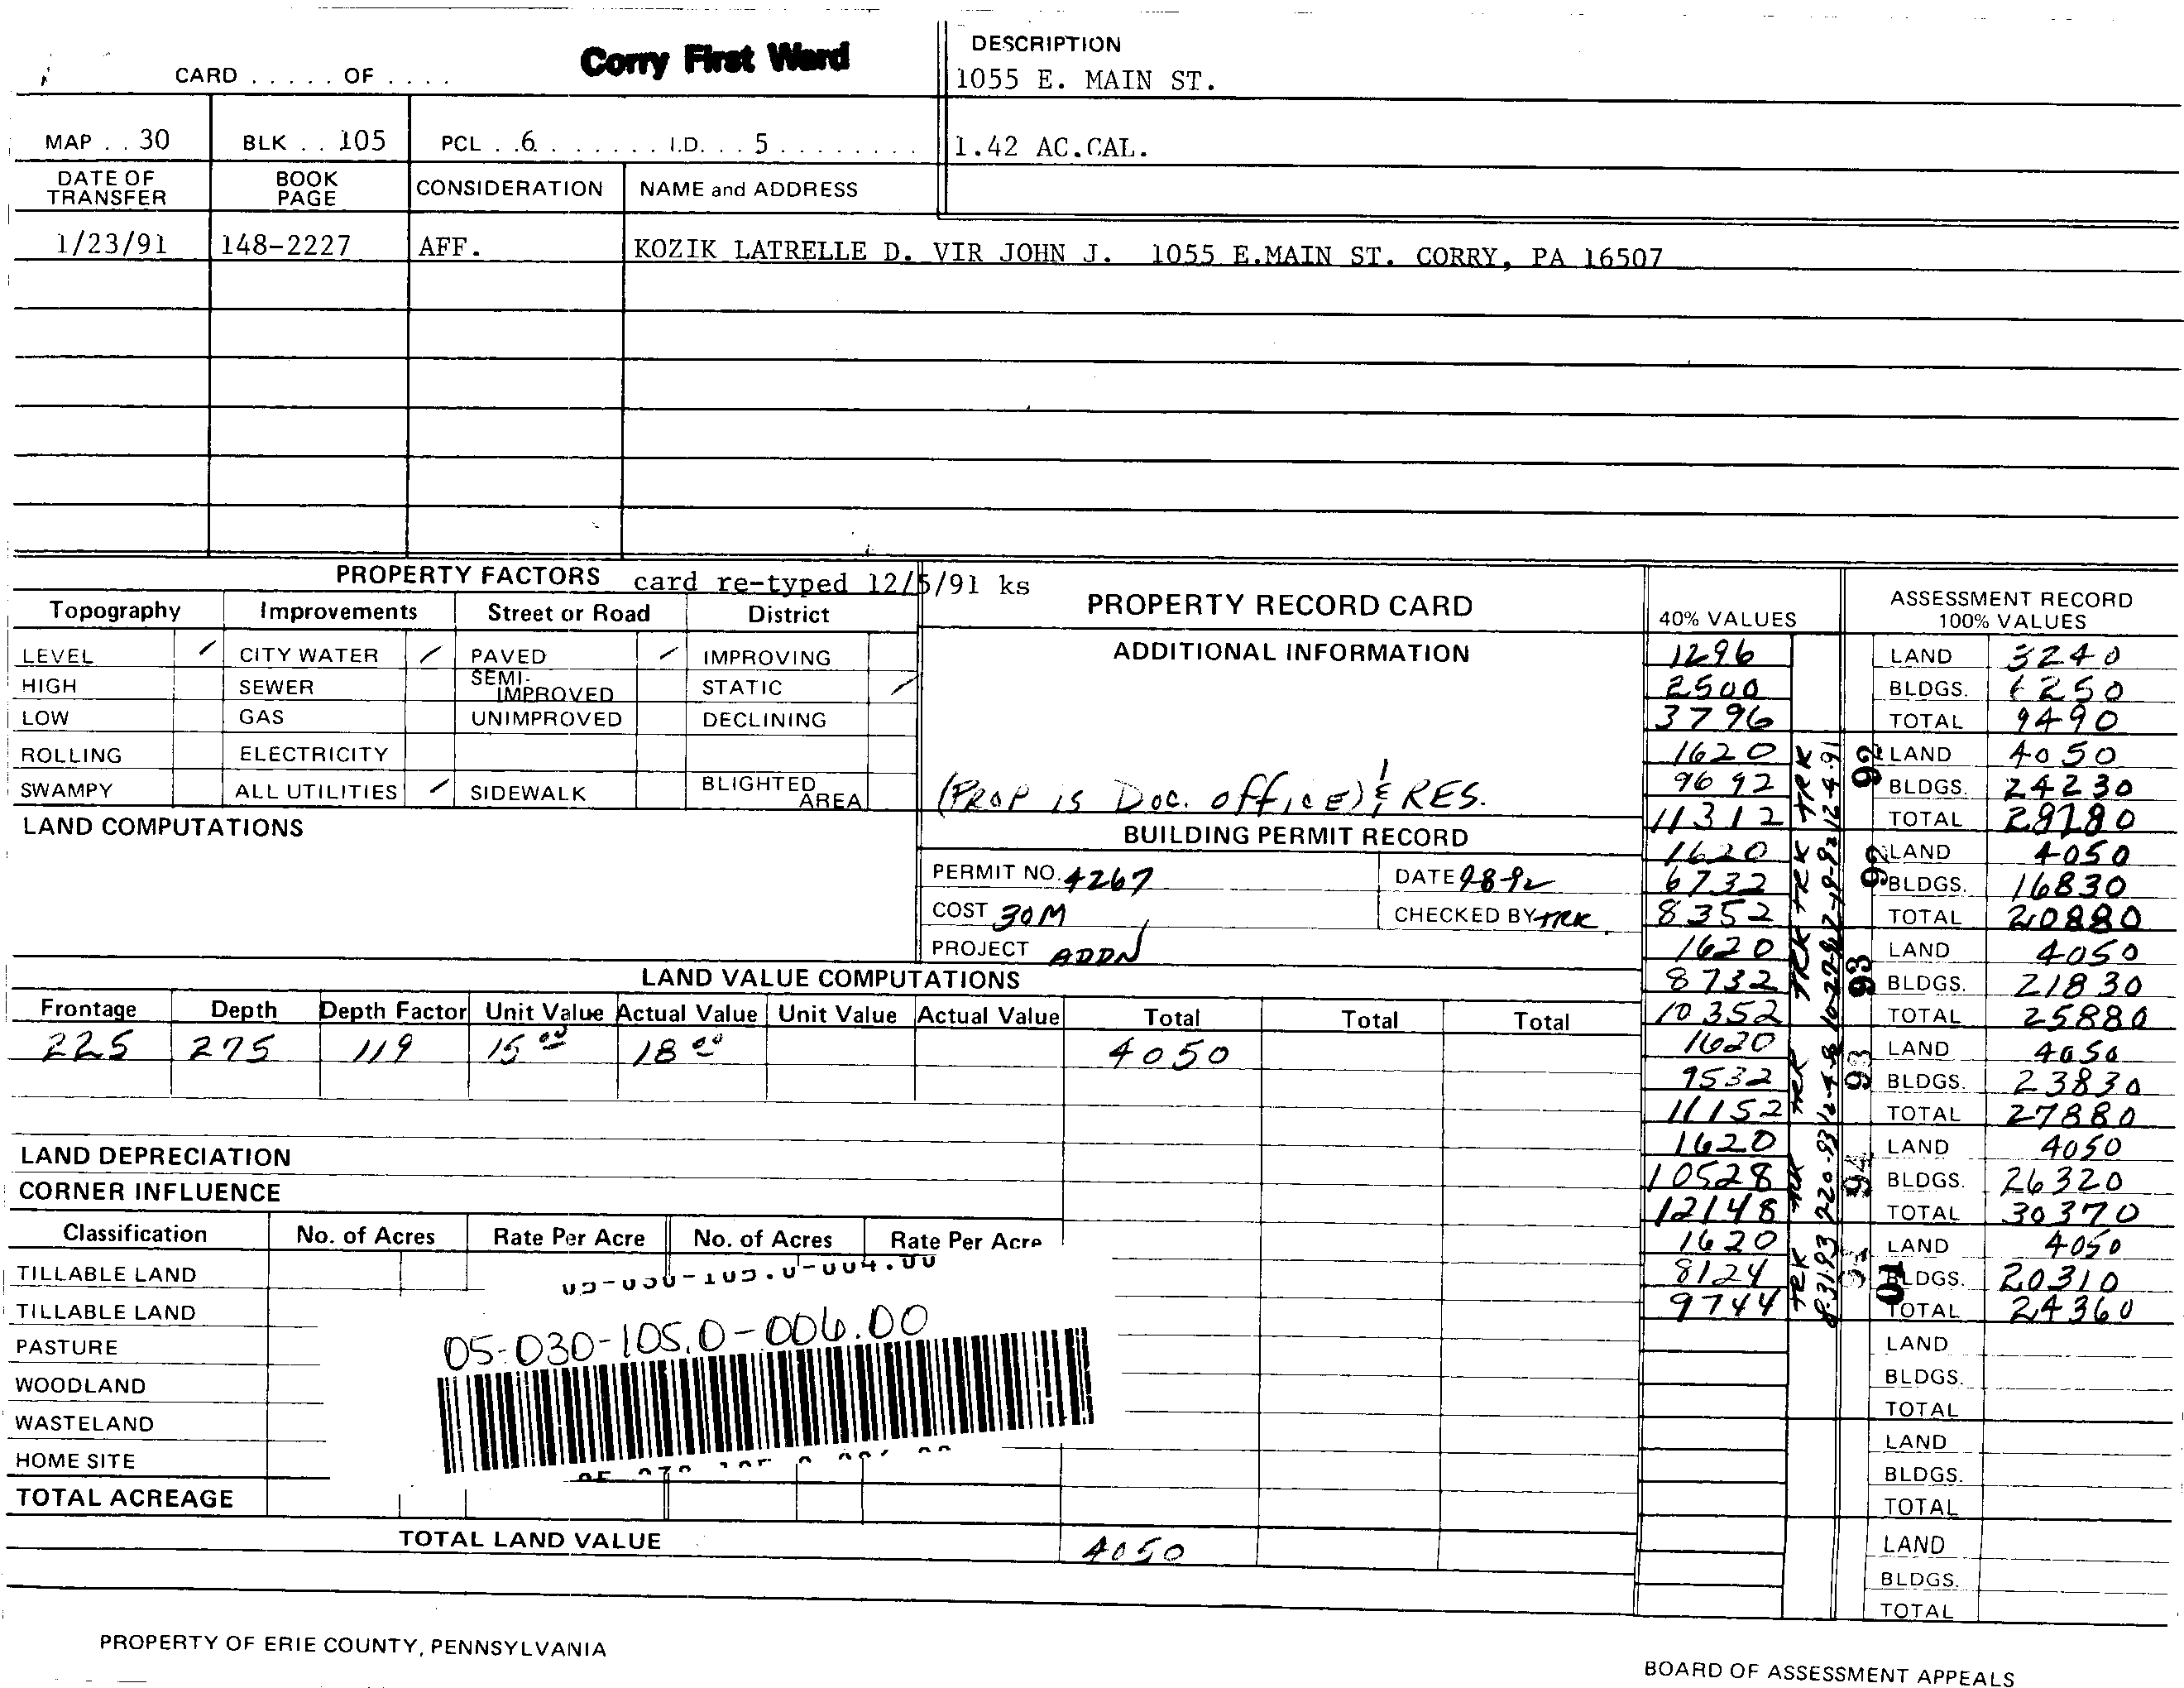 Corry First Ward
CARD . . . . . OF . . . .
DESCRIPTION
1055 E. MAIN ST.
MAP . . 30 BLK . . 105 PCL . .6. . . . . . . I.D. . . 5 . . . . . . . . .
1.42 AC.CAL.
DATE OF TRANSFER BOOK PAGE CONSIDERATION NAME and ADDRESS
1/23/91 148-2227 AFF. KOZIK LATRELLE D. VIR JOHN J. 1055 E.MAIN ST. CORRY, PA 16507
PROPERTY FACTORS card re-typed 12/5/91 ks
Topography Improvements Street or Road District
LEVEL / CITY WATER / PAVED / IMPROVING
HIGH SEWER SEMI-IMPROVED STATIC /
LOW GAS UNIMPROVED DECLINING
ROLLING ELECTRICITY
SWAMPY ALL UTILITIES / SIDEWALK BLIGHTED AREA
PROPERTY RECORD CARD
ADDITIONAL INFORMATION
(PROP IS DOC. OFFICE) & RES.
LAND COMPUTATIONS
BUILDING PERMIT RECORD
PERMIT NO. 4267 DATE 9-8-92
COST 30M CHECKED BY TRK
PROJECT ADDN
LAND VALUE COMPUTATIONS
Frontage Depth Depth Factor Unit Value Actual Value Unit Value Actual Value Total Total Total
225 275 119 15 00 18 00 4050
LAND DEPRECIATION
CORNER INFLUENCE
Classification No. of Acres Rate Per Acre No. of Acres Rate Per Acre
TILLABLE LAND
TILLABLE LAND
PASTURE
WOODLAND
WASTELAND
HOME SITE
TOTAL ACREAGE
05-030-105.0-004.00
05-030-105.0-006.00
TOTAL LAND VALUE 4050
40% VALUES ASSESSMENT RECORD 100% VALUES
1296 LAND 3240
2500 BLDGS. 6250
3796 TOTAL 9490
1620 LAND 4050
9692 BLDGS. 24230
11312 TOTAL 28280
TRK 12-4-91 92
1620 LAND 4050
6732 BLDGS. 16830
8352 TOTAL 20880
TRK 92
1620 LAND 4050
8732 BLDGS. 21830
10352 TOTAL 25880
TRK 10-22-92 93
1620 LAND 4050
9532 BLDGS. 23830
11152 TOTAL 27880
TRK 93
1620 LAND 4050
10528 BLDGS. 26320
12148 TOTAL 30370
TRK 2-20-93 94
1620 LAND 4050
8124 BLDGS. 20310
9744 TOTAL 24360
TRK 8-31-93
LAND
BLDGS.
TOTAL
LAND
BLDGS.
TOTAL
LAND
BLDGS.
TOTAL
PROPERTY OF ERIE COUNTY, PENNSYLVANIA
BOARD OF ASSESSMENT APPEALS